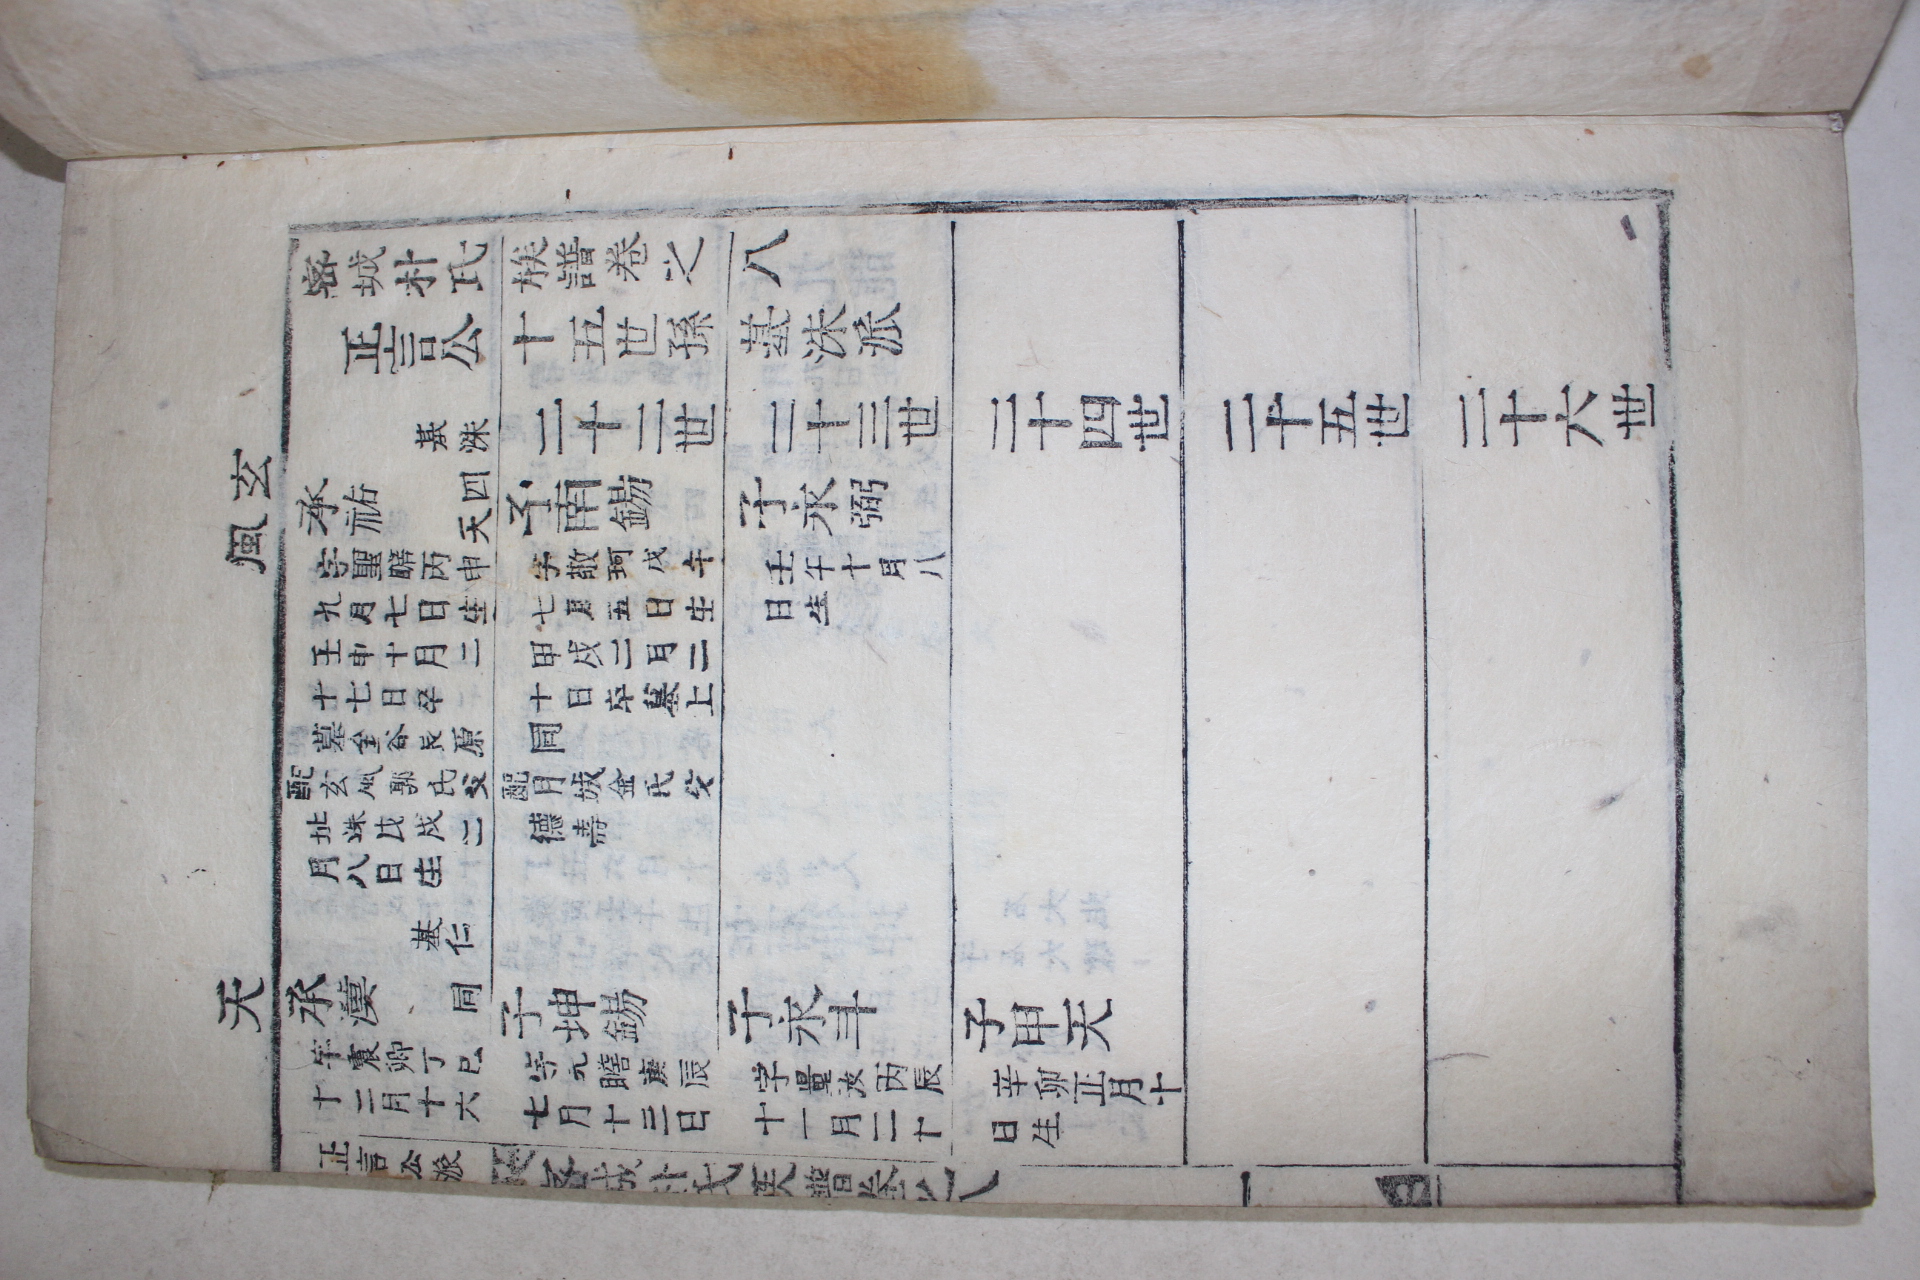 密城朴氏族譜卷之八
正言公十五世孫基洙派
基洙 二十二世 二十三世 二十四世 二十五世 二十六世
玄風
承祐 天四 子南錫 子永弼
字聖瞻丙申 字敬珂戊午 壬午十月八
九月七日生 七月五日生 日生
壬申十月二 甲戌二月二
十七日卒 十日卒墓上
墓金谷艮原 同
配玄風郭氏父 配月城金氏父
址洙戊戌二 德壽
月八日生
基仁
天
承漢 同 子坤錫 子永斗 子甲天
字震卿丁巳 字元瞻庚辰 字量汝丙辰 辛卯正月十
十二月十六 七月十三日 十一月二十 日生
正言公派 密城朴氏族譜卷之八 一